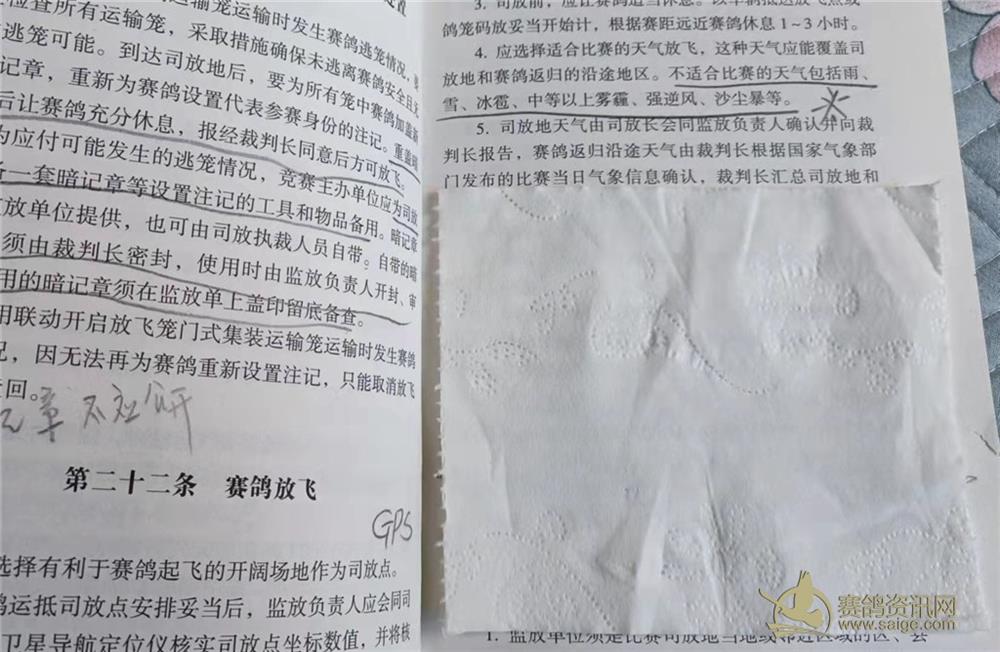 检查所有运输笼，采取措施确保未逃离赛鸽安全且无
逃笼可能。到达司放地后，要为所有笼中赛鸽加盖新
记章，重新为赛鸽设置代表参赛身份的注记。重盖暗
后让赛鸽充分休息，报经裁判长同意后方可放飞。
为应付可能发生的逃笼情况，竞赛主办单位应为司放
备一套暗记章等设置注记的工具和物品备用。暗记章
放单位提供，也可由司放执裁人员自带。自带的暗
须由裁判长密封，使用时由监放负责人开封、审
用的暗记章须在监放单上盖印留底备查。
用联动开启放飞笼门式集装运输笼运输时发生赛鸽
况，因无法再为赛鸽重新设置注记，只能取消放飞
回。
章不公开
第二十二条 赛鸽放飞
GPS
选择有利于赛鸽起飞的开阔场地作为司放点。
鸽运抵司放点安排妥当后，监放负责人应会同司
卫星导航定位仪核实司放点坐标数值，并将核
3. 司放前，应让赛鸽适当休息。以车辆抵达放飞点或
鸽笼码放妥当开始计，根据赛距远近赛鸽休息 1~3 小时。
4. 应选择适合比赛的天气放飞，这种天气应能覆盖司
放地和赛鸽返归的沿途地区。不适合比赛的天气包括雨、
雪、冰雹、中等以上雾霾、强逆风、沙尘暴等。
5. 司放地天气由司放长会同监放负责人确认并向裁
判长报告，赛鸽返归沿途天气由裁判长根据国家气象部
门发布的比赛当日气象信息确认，裁判长汇总司放地和
1. 监放单位须是比赛司放地当地或邻近区域的区、县
赛鸽资讯网
www.saige.com